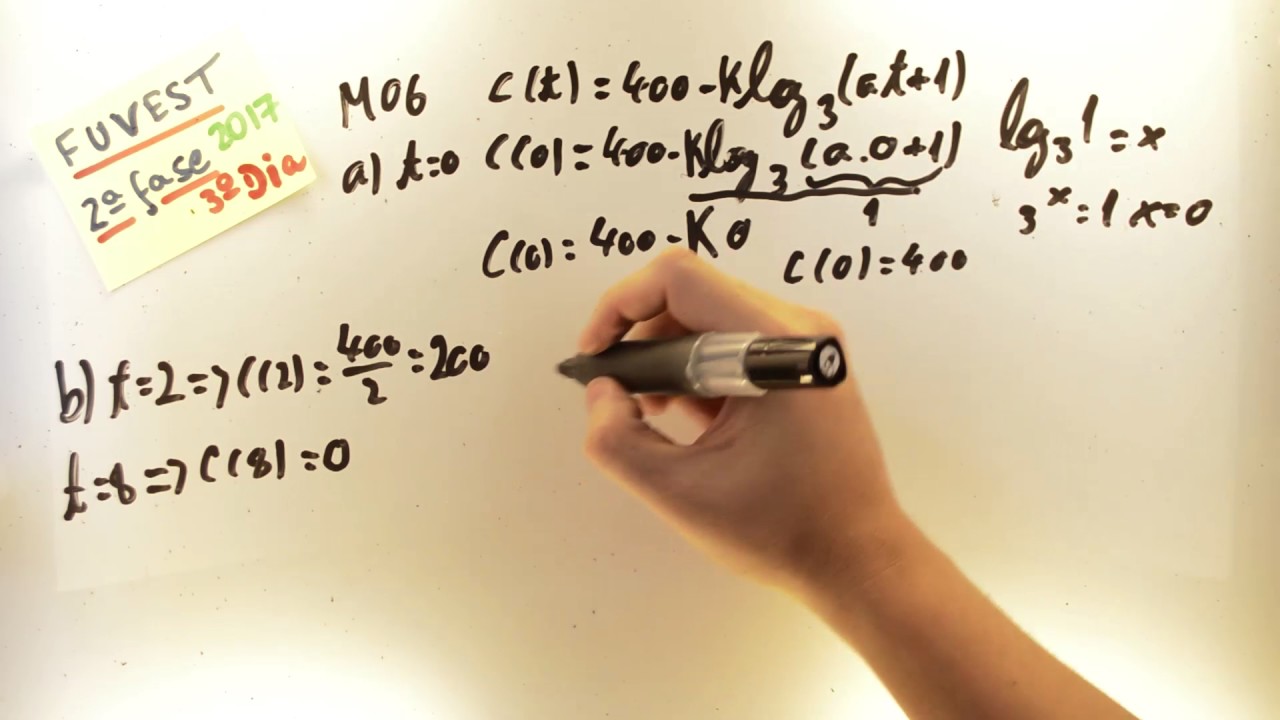 FUVEST
2ª fase 2017
3º Dia
M06 C(t) = 400 - K log₃(at+1)
a) t=0 C(0) = 400 - K log₃(a.0+1)
1
C(0) = 400 - K 0 C(0) = 400
log₃1 = x
3ˣ = 1 x=0
b) t=2 => C(2) = 400/2 = 200
t=8 => C(8) = 0